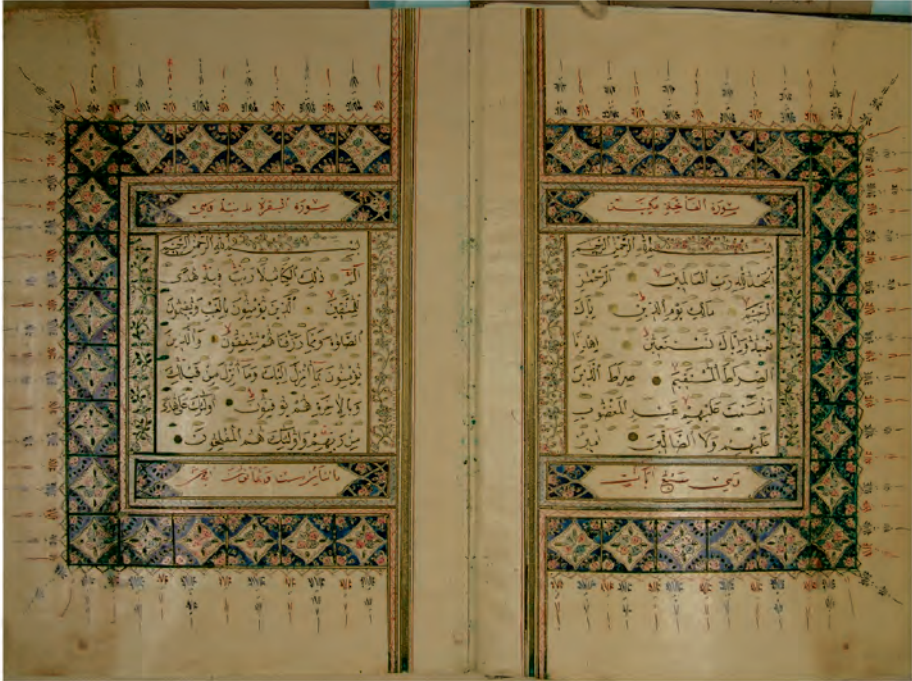 سورة الفاتحة مكية
بسم الله الرحمن الرحيم
الحمد لله رب العالمين الرحمن
الرحيم مالك يوم الدين إياك
نعبد وإياك نستعين اهدنا
الصراط المستقيم صراط الذين
أنعمت عليهم غير المغضوب
عليهم ولا الضالين امين
وهي سبع آيات
سورة البقرة مدنية وهي
بسم الله الرحمن الرحيم
الم ذلك الكتاب لا ريب فيه هدى
للمتقين الذين يؤمنون بالغيب ويقيمون
الصلوة ومما رزقناهم ينفقون والذين
يؤمنون بما أنزل إليك وما أنزل من قبلك
وبالآخرة هم يوقنون أولئك على هدى
من ربهم وأولئك هم المفلحون